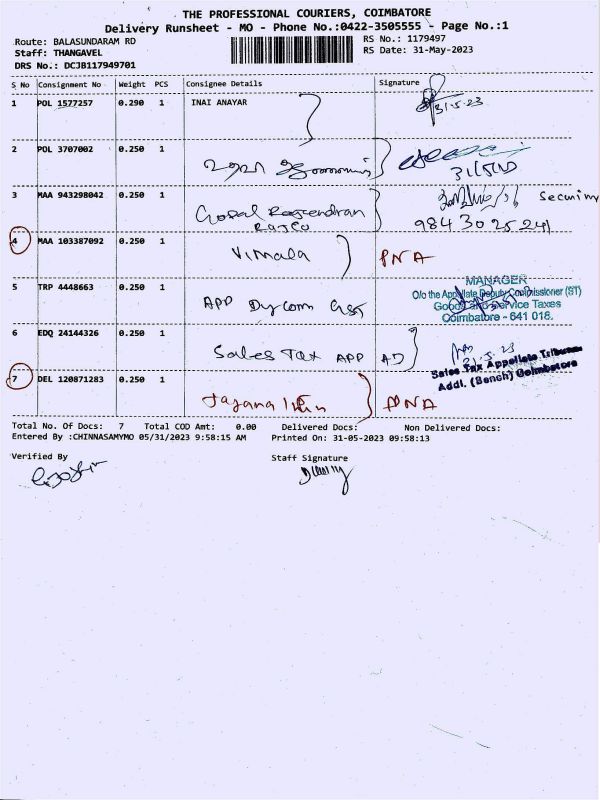 THE PROFESSIONAL COURIERS, COIMBATORE
Delivery Runsheet - MO - Phone No.:0422-3505555 - Page No.:1
Route: BALASUNDARAM RD
RS No.: 1179497
Staff: THANGAVEL
RS Date: 31-May-2023
DRS No.: DCJB117949701
S No Consignment No Weight PCS Consignee Details Signature
1 POL 1577257 0.290 1 INAI ANAYAR
31.5.23
2 POL 3707002 0.250 1
3 MAA 943298042 0.250 1 Gopal Rajcendran
Security
98430 25241
4 MAA 103387092 0.250 1 Vimala PNA
5 TRP 4448663 0.250 1 APP Dy Com GST
MANAGER
O/o the Appellate Deputy Commissioner (ST)
Goods and Service Taxes
Coimbatore - 641 018.
6 EDQ 24144326 0.250 1 Sales Tax APP AD
Sales Tax Appellate Tribunal
Addl. (Bench) Coimbatore
7 DEL 120871283 0.250 1 PNA
Total No. Of Docs: 7 Total COD Amt: 0.00 Delivered Docs: Non Delivered Docs:
Entered By :CHINNASAMYMO 05/31/2023 9:58:15 AM Printed On: 31-05-2023 09:58:13
Verified By Staff Signature